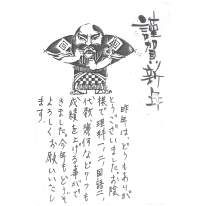 謹賀新年
昨年は、どうもありが
とうございました。お陰
様で理科一、二、国語二、
代数、幾何などりつも
成績を上げる事がで
きました。今年もどうぞ
よろしくお願いいたし
ます。